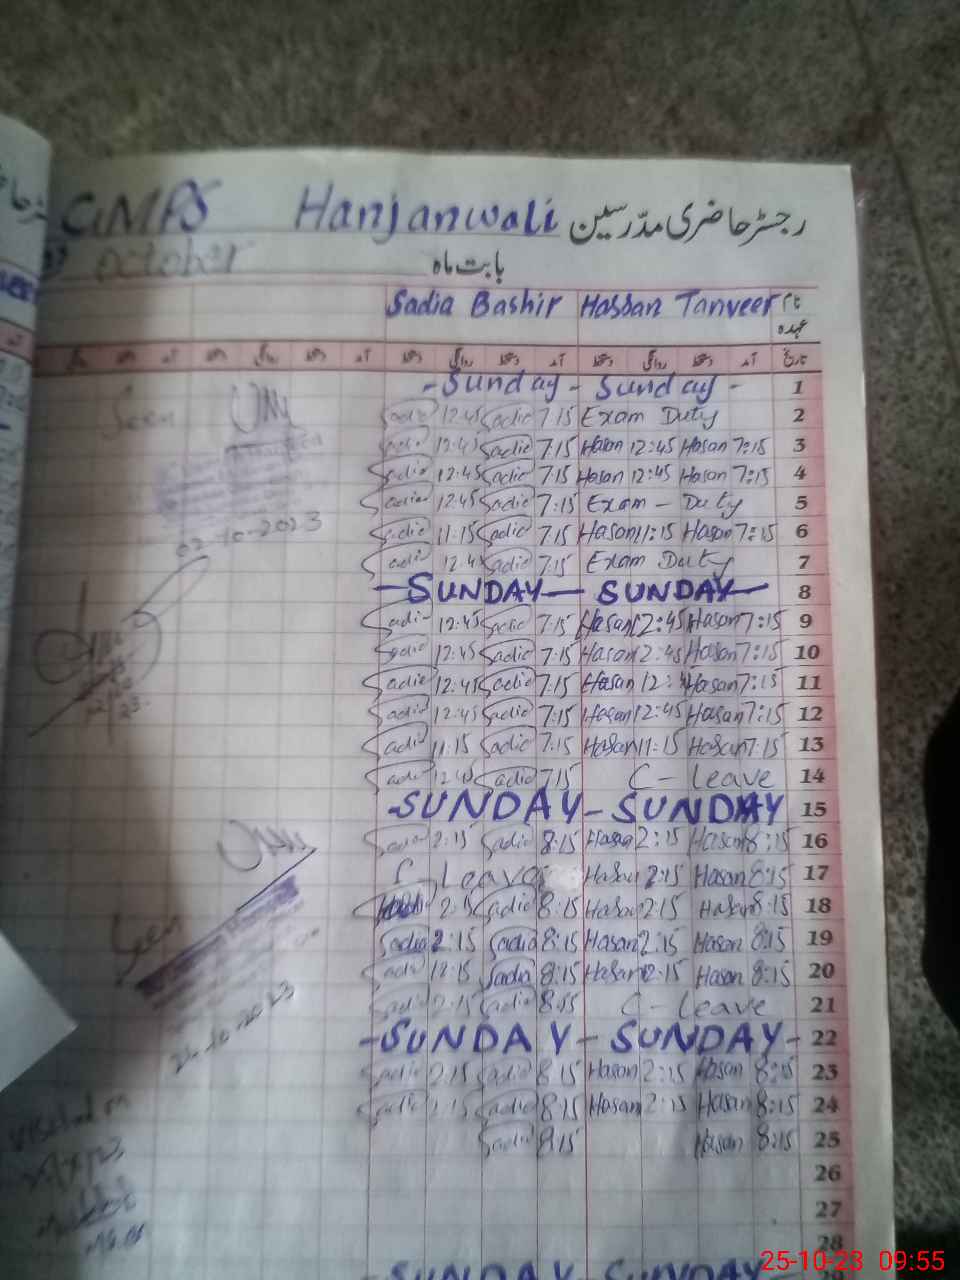 GMPS Hanjanwali رجسٹر حاضری مدرسین
October بابت ماہ
Sadia Bashir Hassan Tanveer نام
عہدہ
آمد دستخط روانگی دستخط آمد دستخط روانگی دستخط آمد تاریخ
- Sunday - Sunday - 1
Seen
Sadia 12:45 Sadia 7:15 Exam Duty 2
Sadia 12:45 Sadia 7:15 Hasan 12:45 Hasan 7:15 3
Sadia 12:45 Sadia 7:15 Hasan 12:45 Hasan 7:15 4
Sadia 12:45 Sadia 7:15 Exam - Duty 5
02-10-2023
Sadia 11:15 Sadia 7:15 Hasan 11:15 Hasan 7:15 6
Sadia 12:45 Sadia 7:15 Exam Duty 7
- SUNDAY - SUNDAY - 8
Sadia 12:45 Sadia 7:15 Hasan 12:45 Hasan 7:15 9
Sadia 12:45 Sadia 7:15 Hasan 12:45 Hasan 7:15 10
Sadia 12:45 Sadia 7:15 Hasan 12:45 Hasan 7:15 11
Sadia 12:45 Sadia 7:15 Hasan 12:45 Hasan 7:15 12
Sadia 11:15 Sadia 7:15 Hasan 11:15 Hasan 7:15 13
Sadia 12:45 Sadia 7:15 C-Leave 14
- SUNDAY - SUNDAY 15
Sadia 2:15 Sadia 8:15 Hasan 2:15 Hasan 8:15 16
C Leave Hasan 2:15 Hasan 8:15 17
2:15 Sadia 8:15 Hasan 2:15 Hasan 8:15 18
Seen
Sadia 2:15 Sadia 8:15 Hasan 2:15 Hasan 8:15 19
Sadia 12:15 Sadia 8:15 Hasan 12:15 Hasan 8:15 20
Sadia 2:15 Sadia 8:15 C-Leave 21
- SUNDAY - SUNDAY - 22
Sadia 2:15 Sadia 8:15 Hasan 2:15 Hasan 8:15 23
Sadia 2:15 Sadia 8:15 Hasan 2:15 Hasan 8:15 24
Visited on
Sadia 8:15 Hasan 8:15 25
26
27
28
SUNDAY SUNDAY
25-10-23 09:55